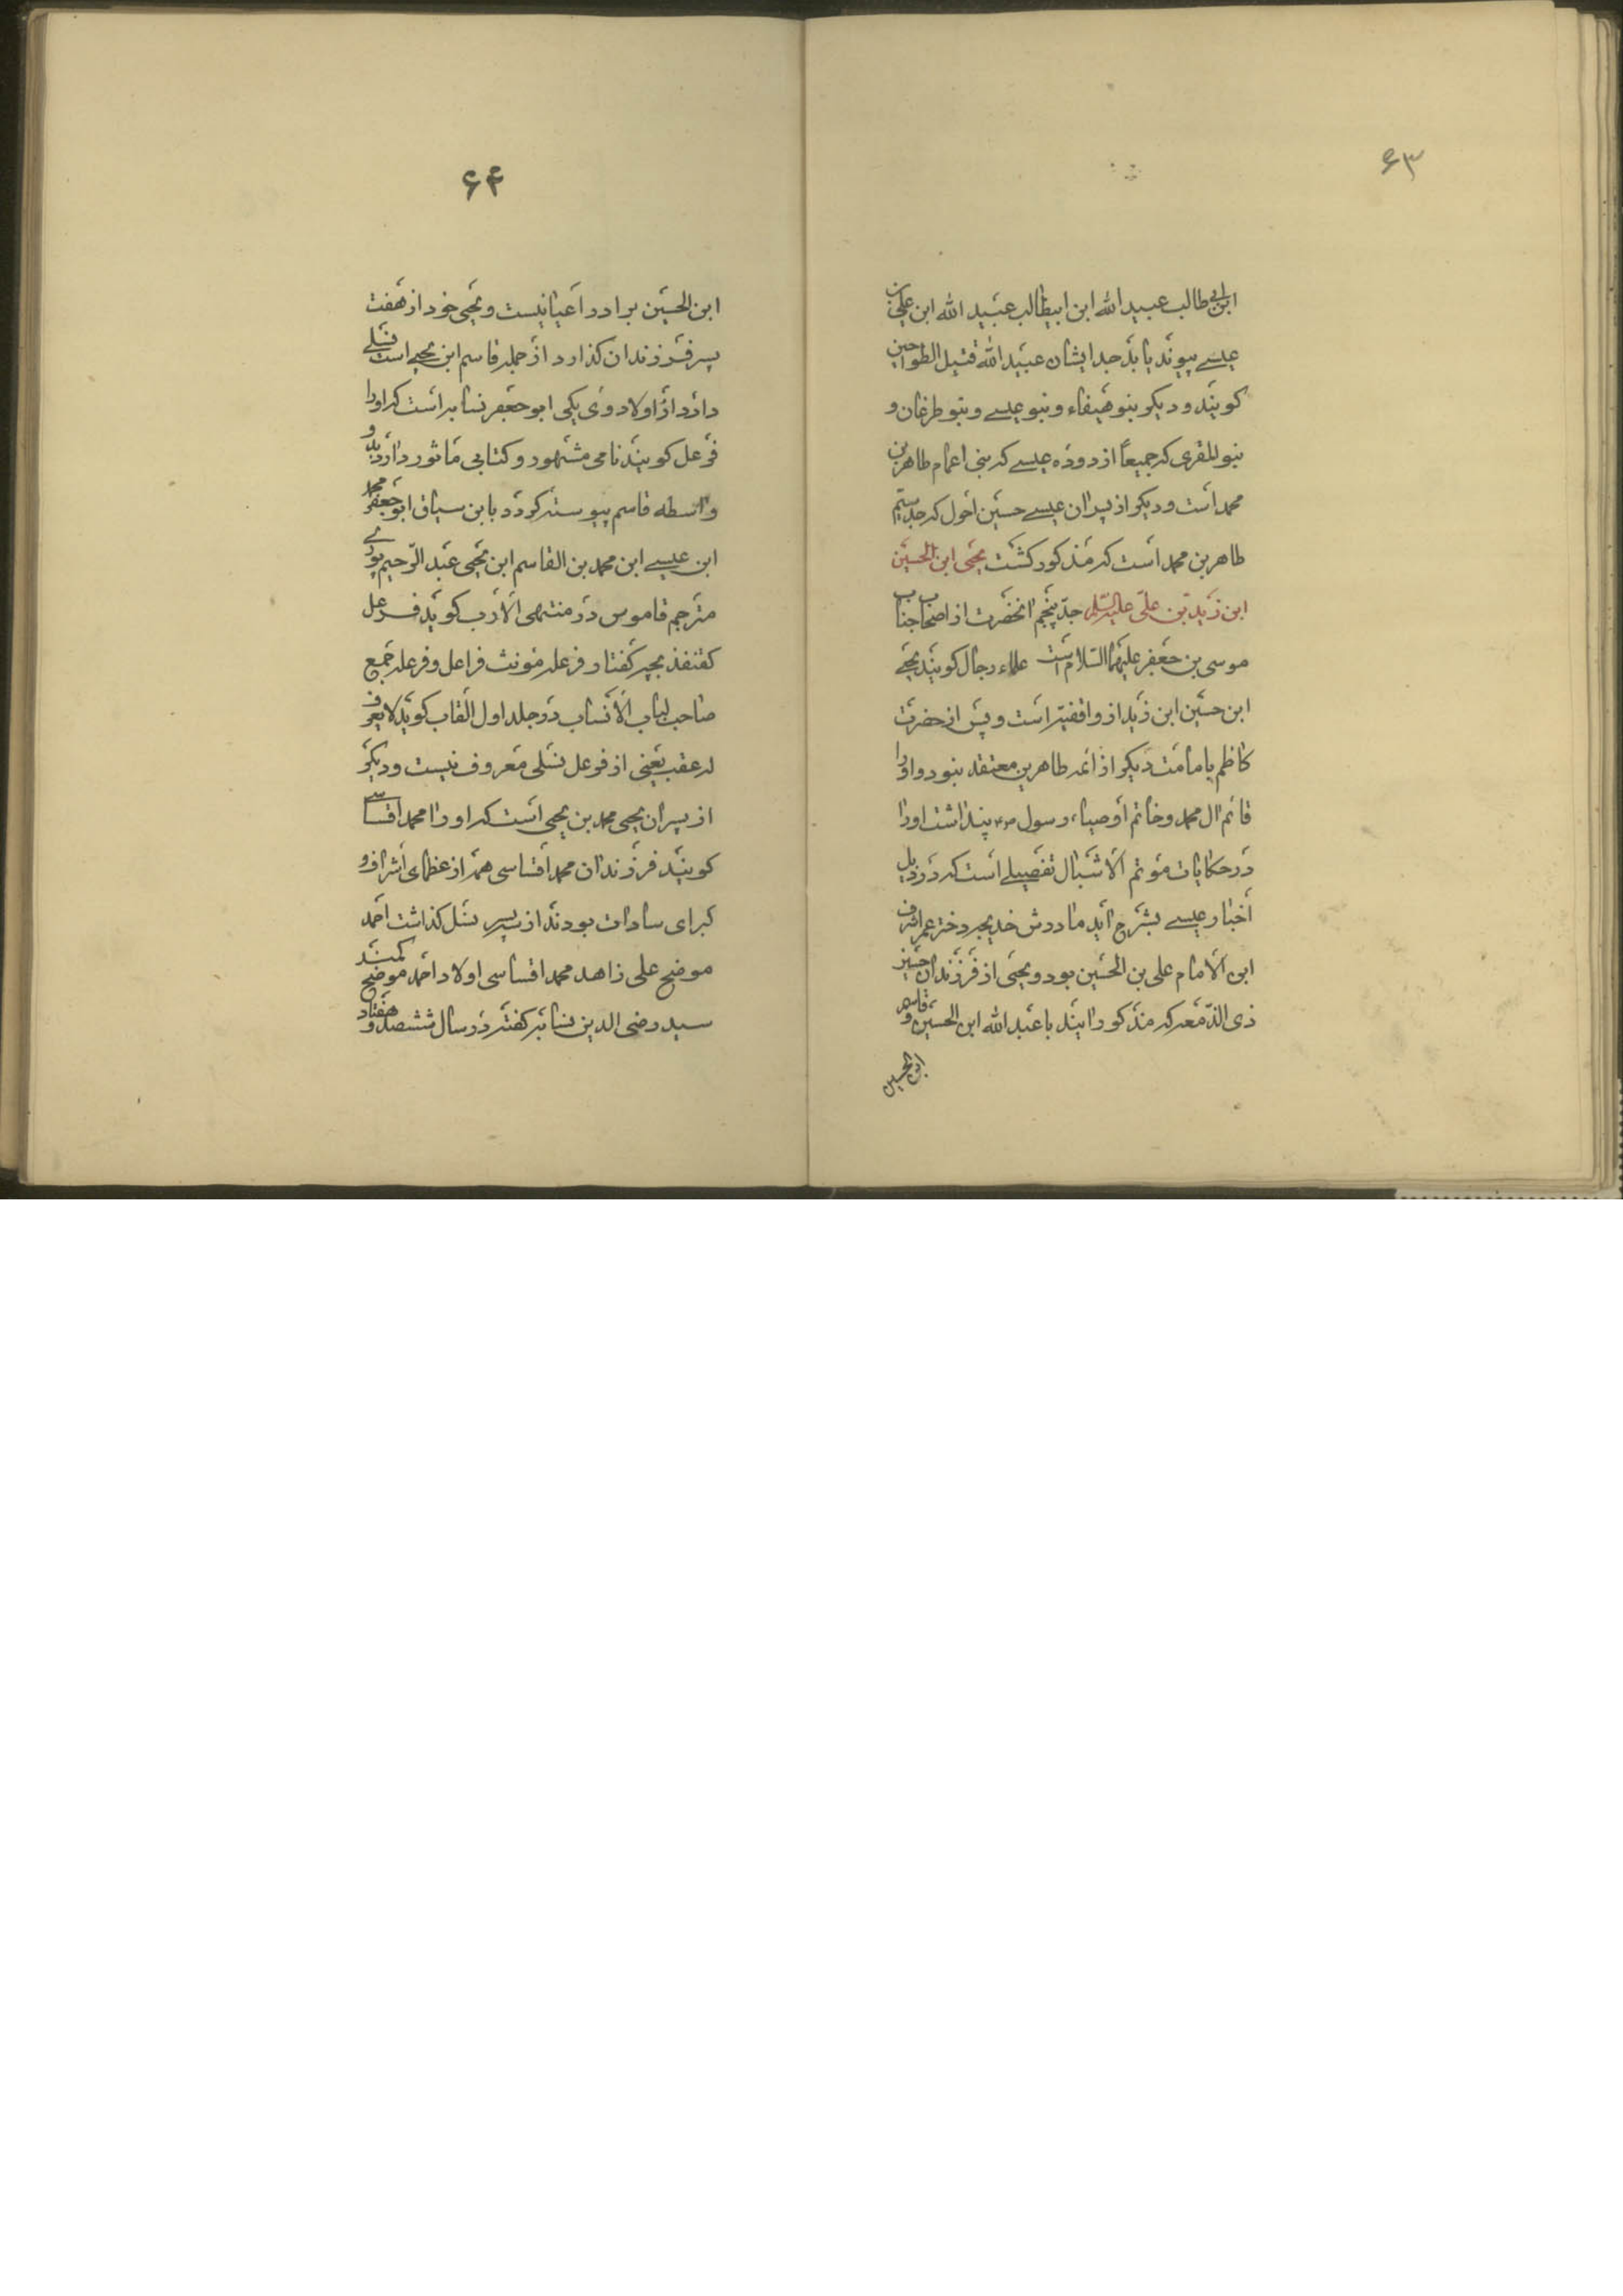 ۶۳
ابن ابی طالب عبید الله ابن ابیطالب عبید الله ابن علی بن
عیسے پیوند یابد جد ایشان عبید الله قتیل الطواحین
کویند و دیکر بنو هیفاء و بنو عیسے و بنو طرغان و
بنو للقری که جمیعاً از دوده عیسے که بنی اعمام طاهر بن
محمد است و دیکر از پسران عیسے حسین احول که جد ستیم
طاهر بن محمد است که مذکور کشت یحیی ابن الحسین
ابن زید بن علی علیه السلم جد پنجم انحضرت از اصحاب جناب
موسی بن جعفر علیهما السلام است علماء رجال کویند یحیے
ابن حسین ابن زید از واقفیه است و پس از حضرت
کاظم بامامت دیکر از ائمه طاهرین معتقد نبود و او را
قائم ال محمد و خاتم اوصیاء رسول ص پنداشت او را
در حکایات موتم الاشبال تفصیلے است که در ذیل
اخبار عیسے بشرح اید مادرش خدیجه دختر عمر اشرف
ابن الامام علی بن الحسین بود و یحیی از فرزندان حسین
ذی الدمعه که مذکور ایند با عبد الله ابن الحسین و قاسم
ابن الحسین
۶۴
ابن الحسین برادر اعیانیست و یحیی خود از هفت
پسر فرزندان کذارد از جمله قاسم ابن یحیے است نسلے
دارد از اولاد وی یکی ابو جعفر نسابه است که او را
فرعل کویند نامی مشهور و کتابی ماثور دارد و بد
واسطه قاسم پیوسته کردد باین سیاق ابو جعفر محمد
ابن عیسے ابن محمد بن القاسم ابن یحیی عبد الرحیم پوری
مترجم قاموس در منتهی الارب کوید فرعل
کقنفذ بچه کفتار فرعله مونث فراعل و فرعله جمع
صاحب لباب الانساب در جلد اول القاب کوید لا یعرف
له عقب یعنی از فرعل نسلی معروف نیست و دیکر
از پسران یحیی محمد بن یحیی است که او را محمد اقساسے
کویند فرزندان محمد اقساسی همه از عظمای اشراف و
کبرای سادات بودند از سه پسر نسل کذاشت احمد
موضح علی زاهد محمد اقساسی اولاد احمد موضح کمند
سید رضی الدین نسابه کفته در سال ششصد و هفتاد